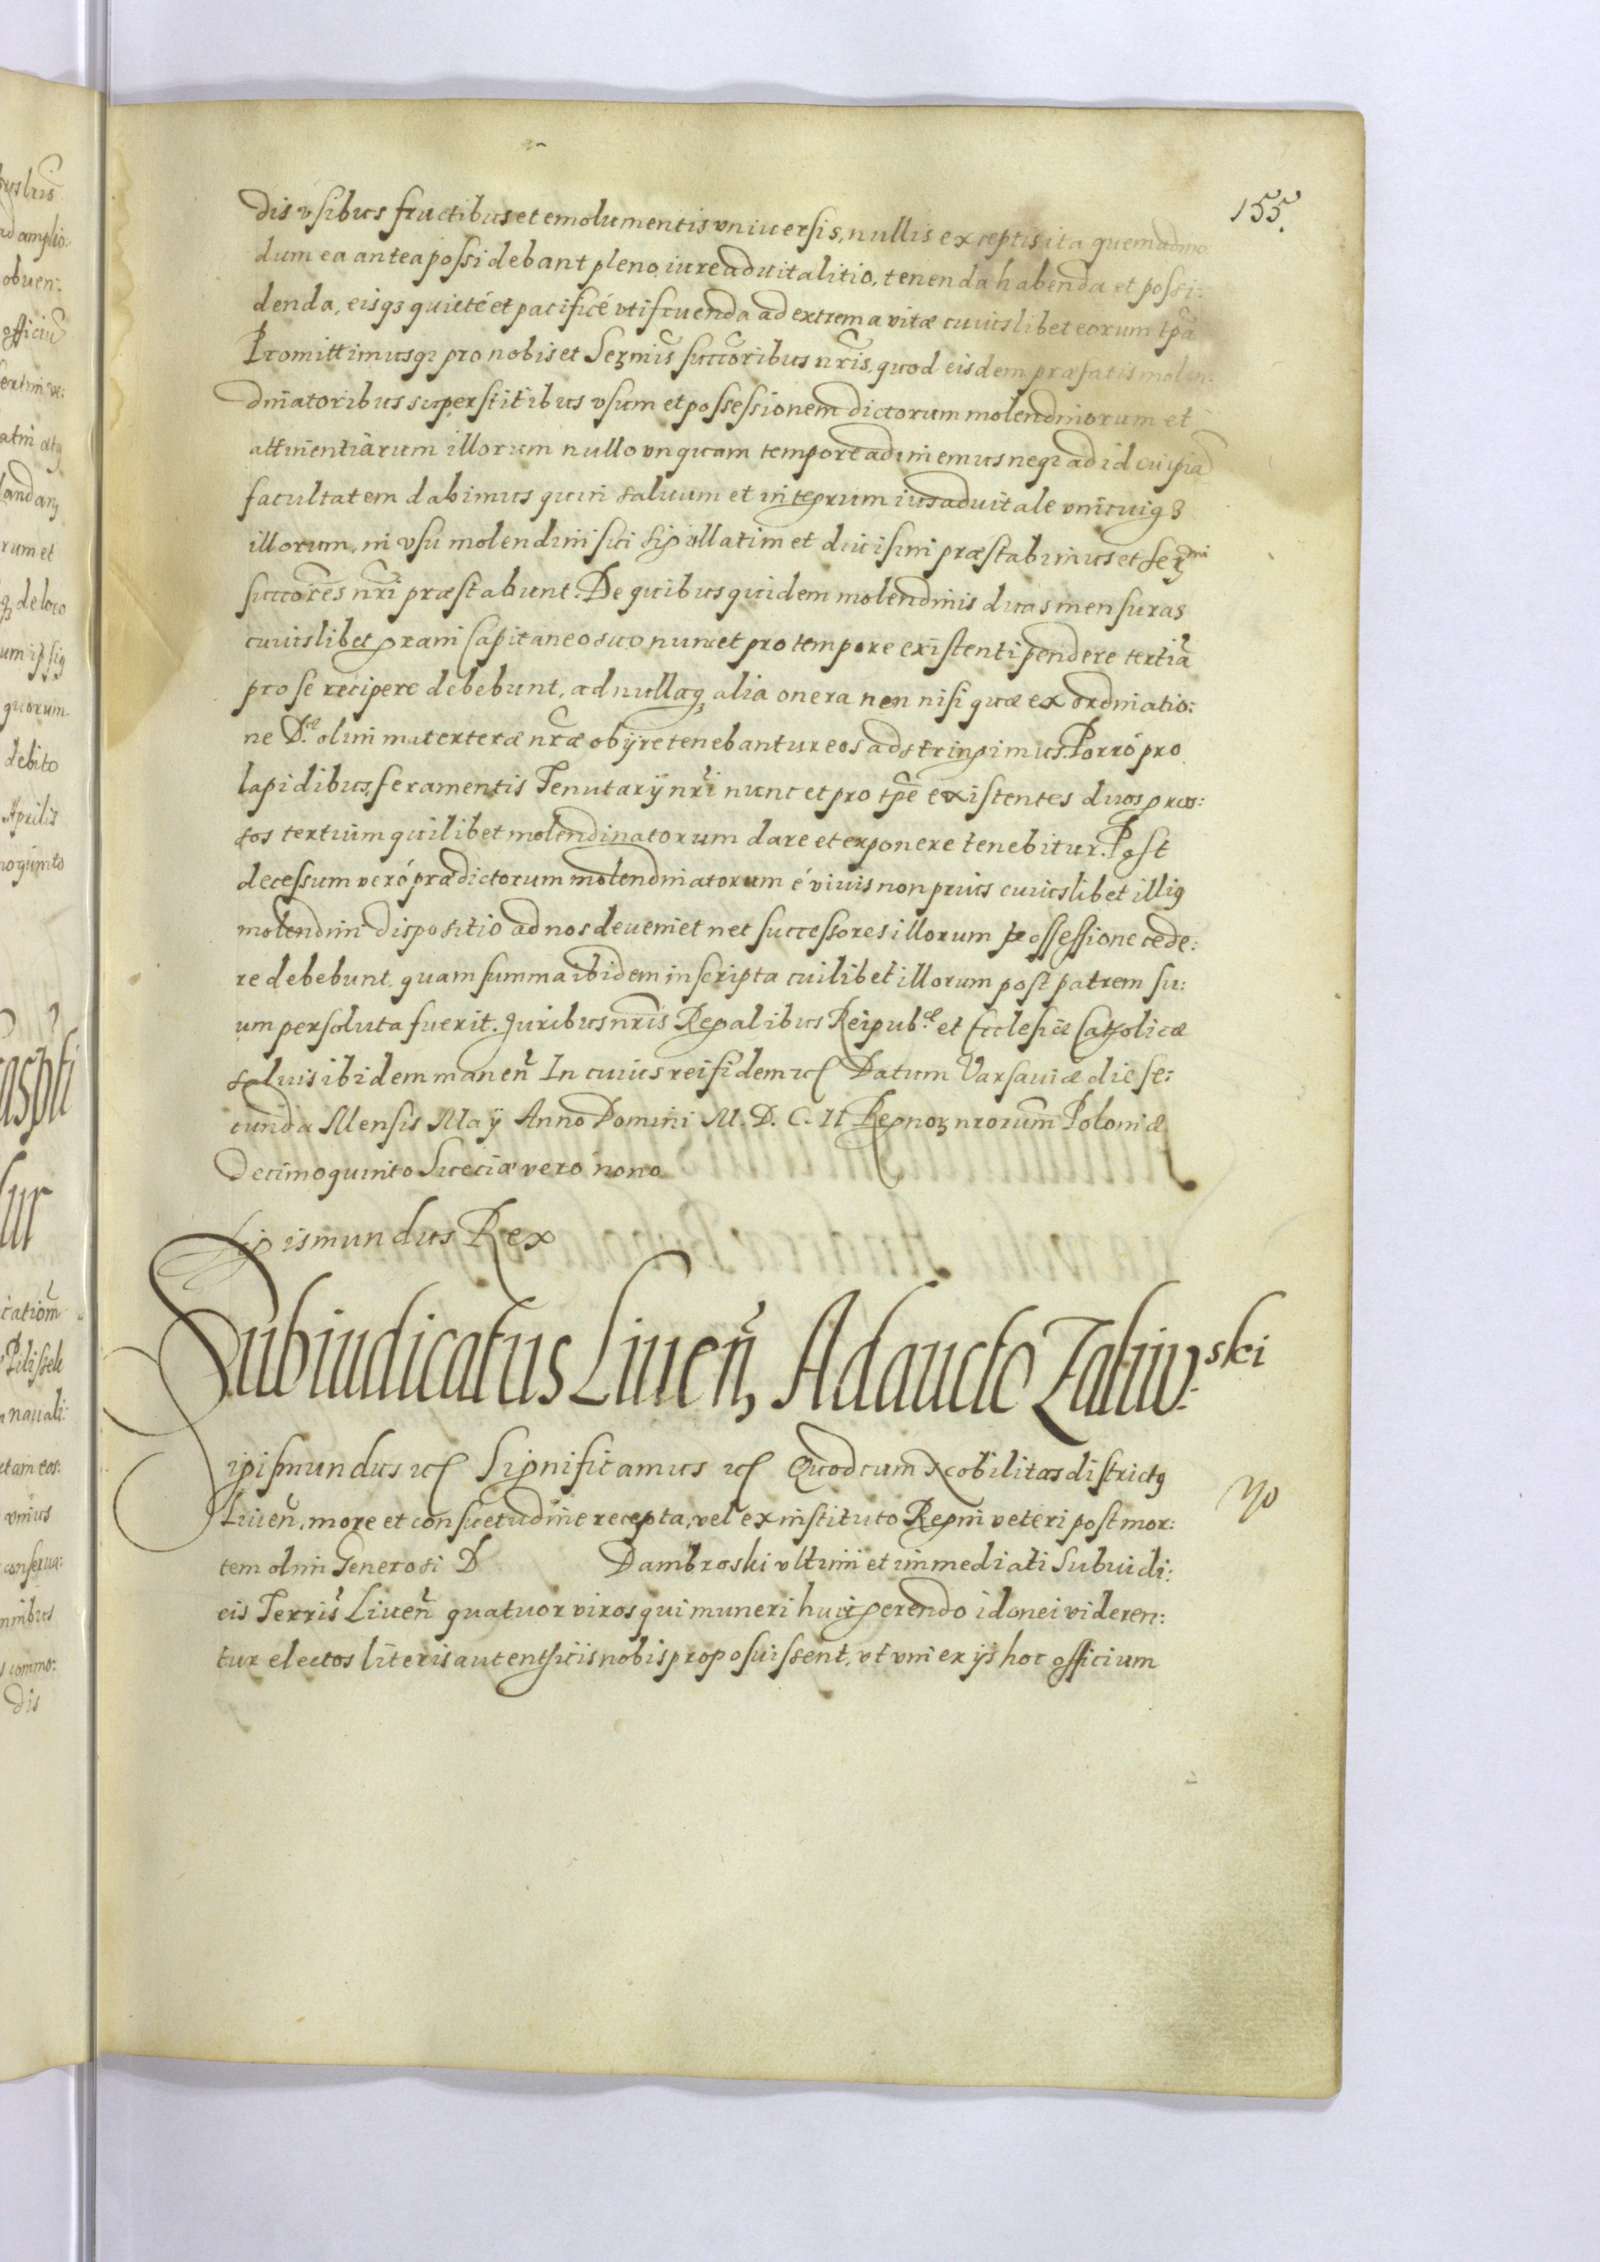 155.
dis vsibus fructibus et emolumentis vniuersis, nullis exceptis ita quemadmo
dum ea antea possidebant pleno iure aduitalitio, tenenda habenda et possi:
denda, eisqз quietè et pacificè vtifruenda ad extrema vitæ cuiuslibet eorum tp̃a
Promittimusqз pro nobis et Serm̃is succ̃oribus nr̃is, quod eisdem præfatis molen:
dinatoribus superstitibus vsum et possessionem dictorum molendinorum et
attinentiarum illorum nullo vnquam tempore adimemus neqз ad id cuipiã
facultatem dabimus quin saluum et integrum ius aduitale vnicuiqз
illorum, in vsu molendini sui sigillatim et diuisim præstabimus et Serᵐⁱ
succ̃ores nr̃i præstabunt. De quibus quidem molendinis duas mensuras
cuiuslibet grani Capitaneo suo nunc et pro tempore existenti pendere tertiã
pro se recipere debebunt, ad nullaqз alia onera non nisi quæ ex ordinatio:
ne D.ᶜᵉ olim materteræ nr̃æ obÿre tenebantur eos adstringimus. Porrò pro
lapidibus, feramentis Tenutarÿ nr̃i nunc et pro tp̃e existentes duos gros:
sos tertium quilibet molendinatorum dare et exponere tenebitur. Post
decessum verò prædictorum molendinatorum è viuis non prius cuiuslibet illiꝯ
molendini dispositio ad nos deueniet nec successores illorum possessione cede:
re debebunt, quam summa ibidem inscripta cuilibet illorum post patrem su:
um persoluta fuerit. Juribus nr̃is Regalibus Reipub.ᶜᵉ et Ecclesiæ Catholicæ
saluis ibidem manen̄ In cuius rei fidem etc Datum Varsauiæ die se:
cunda Mensis Maÿ Anno Domini M. D. C. II Regnoꝝ nrorum̃ Poloniæ
Decimoquinto Sueciæ vero nono
Sigismundus Rex
Subiudicatus Liuen̄, Adaucto Zaliw:ski
igismundus etc Significamus etc Quod cum Nobilitas districtꝯ
Liuen̄, more et consuetudine recepta, vel ex instituto Regni veteri post mor:
tem olim Generosi D Dambroski vltimi et immediati Subiudi:
cis Terrĩs Liuen̄ quatuor viros qui muneri huic gerendo idonei videren:
tur electos literis autenthicis nobis proposuissent, vt vni ex ÿs hoc officium